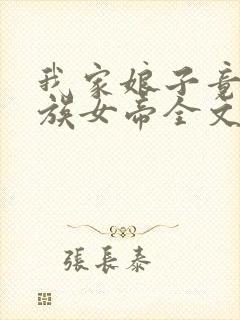 我家娘子竟
族女帝全文
張長泰